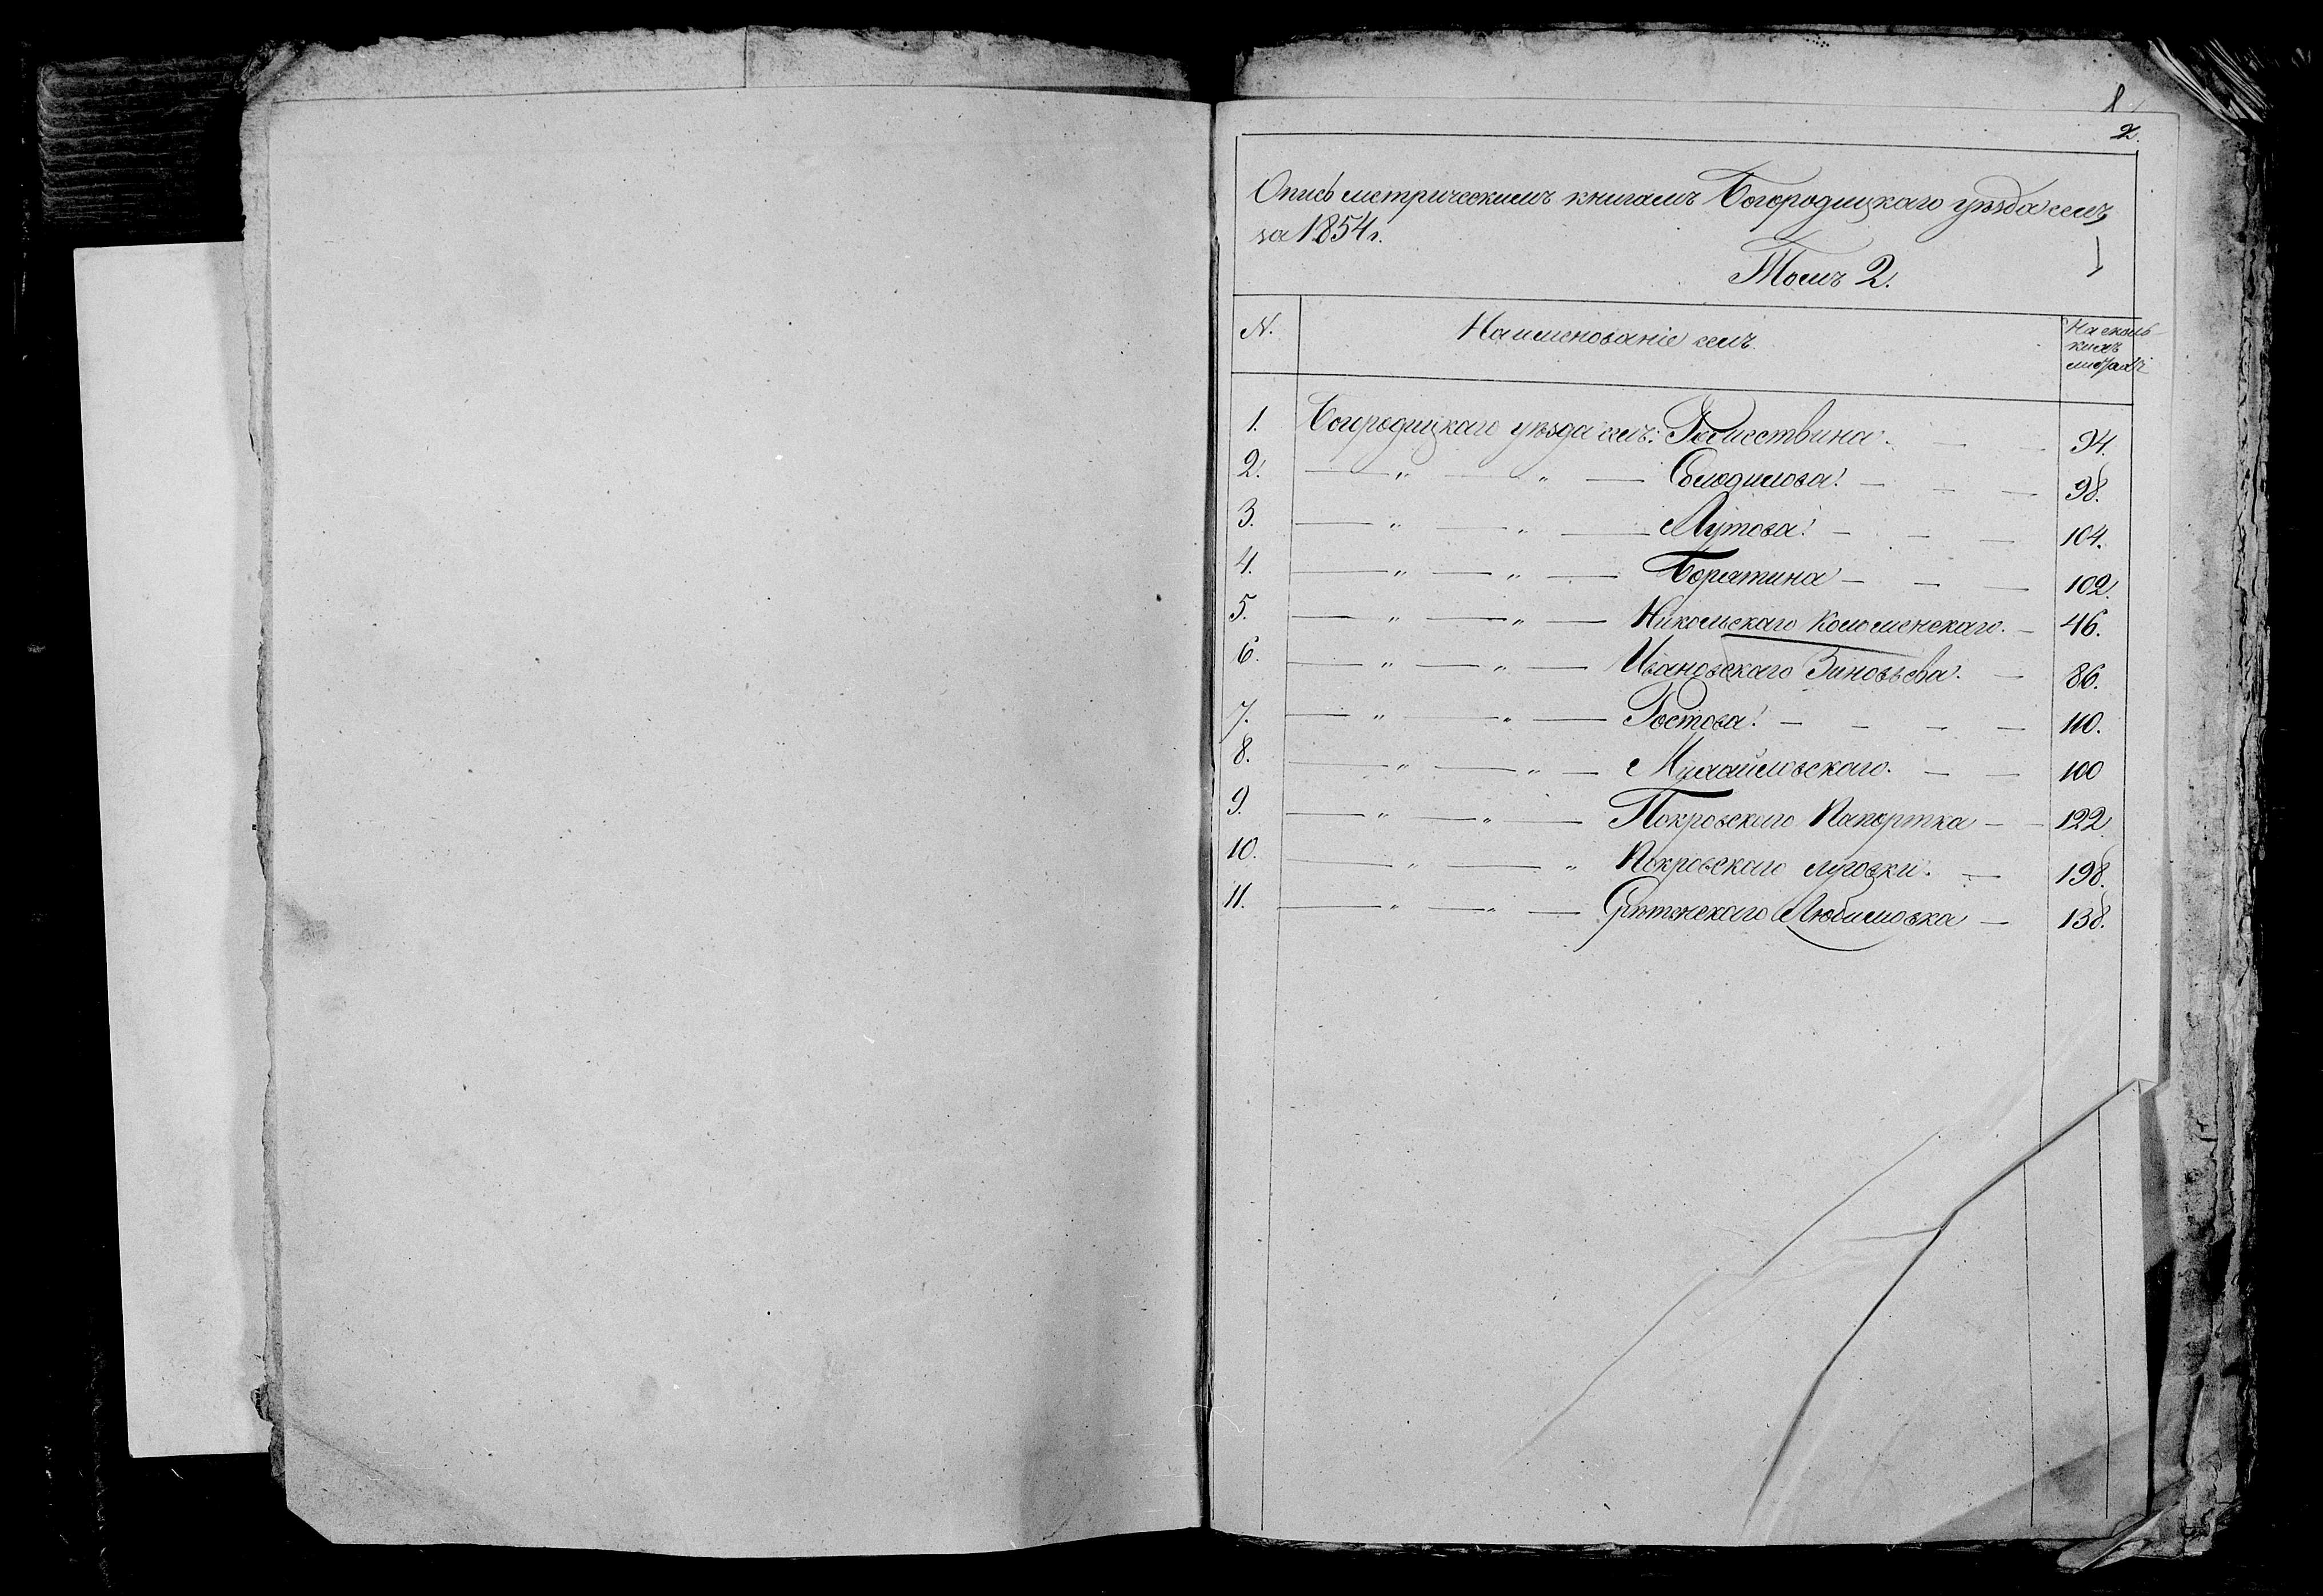 1
2.
Опись метрическимъ книгамъ Богородицкаго уѣзда селъ
за 1854 г.
Томъ 2.
N. Наименованіе селъ. На сколь-
кихъ
листахъ
1. Богородицкаго уѣзда селъ: Рожествина. — — 94.
2. — „ — „ — — — — 98.
3. — „ — „ — Лутова. — — — 104.
4. — „ — „ — Борятина — — — 102.
5. — „ — „ — Никольскаго Коломенскаго. — 46.
6. — „ — „ — Ивановскаго Зиновьева. — 86.
7. — „ — „ — Ростова. — — — — 110.
8. — „ — „ — Михайловскаго. — — 100
9. — „ — „ — Покровскаго Папортка — — 122.
10. — „ — „ Покровскаго Луговки. — 198.
11. — „ — „ — Срѣтенскаго Любимовка — 138.